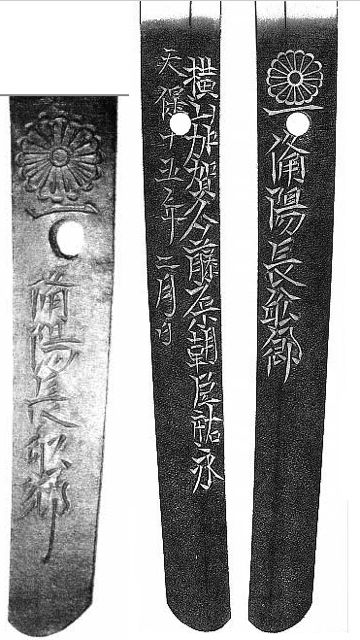 一備陽長舩郷
横山加賀介藤原朝臣祐永
天保十五年二月日
一備陽長舩郷